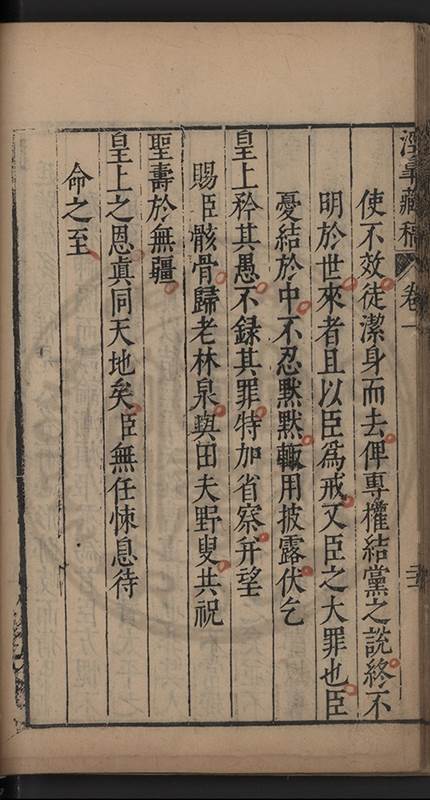 涇臯藏稿 卷一
使不效徒潔身而去俾專權結黨之說終不
明於世來者且以臣爲戒又臣之大罪也臣
憂結於中不忍默默輙用披露伏乞
皇上矜其愚不録其罪特加省察幷望
賜臣骸骨歸老林泉與田夫野叟共祝
聖壽於無疆
皇上之恩眞同天地矣臣無任悚息待
命之至